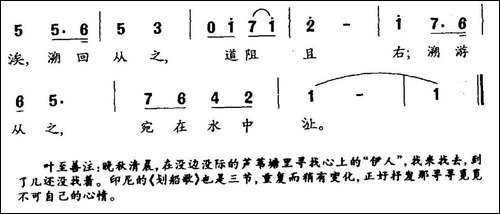 5 5·6 | 5 3 | 0 i 7 i | 2 - | i 7·6
涘,溯回 从之, 道阻 且 右;溯游
6 5· | 7 6 4 2 | 1 - | 1 ‖
从之, 宛在水中 沚。
叶至善注:晚秋清晨,在没边没际的芦苇塘里寻找心上的“伊人”,找来找去,到
了儿还没找着。印尼的《划船歌》也是三节,重复而稍有变化,正好抒发那寻寻觅觅
不可自己的心情。